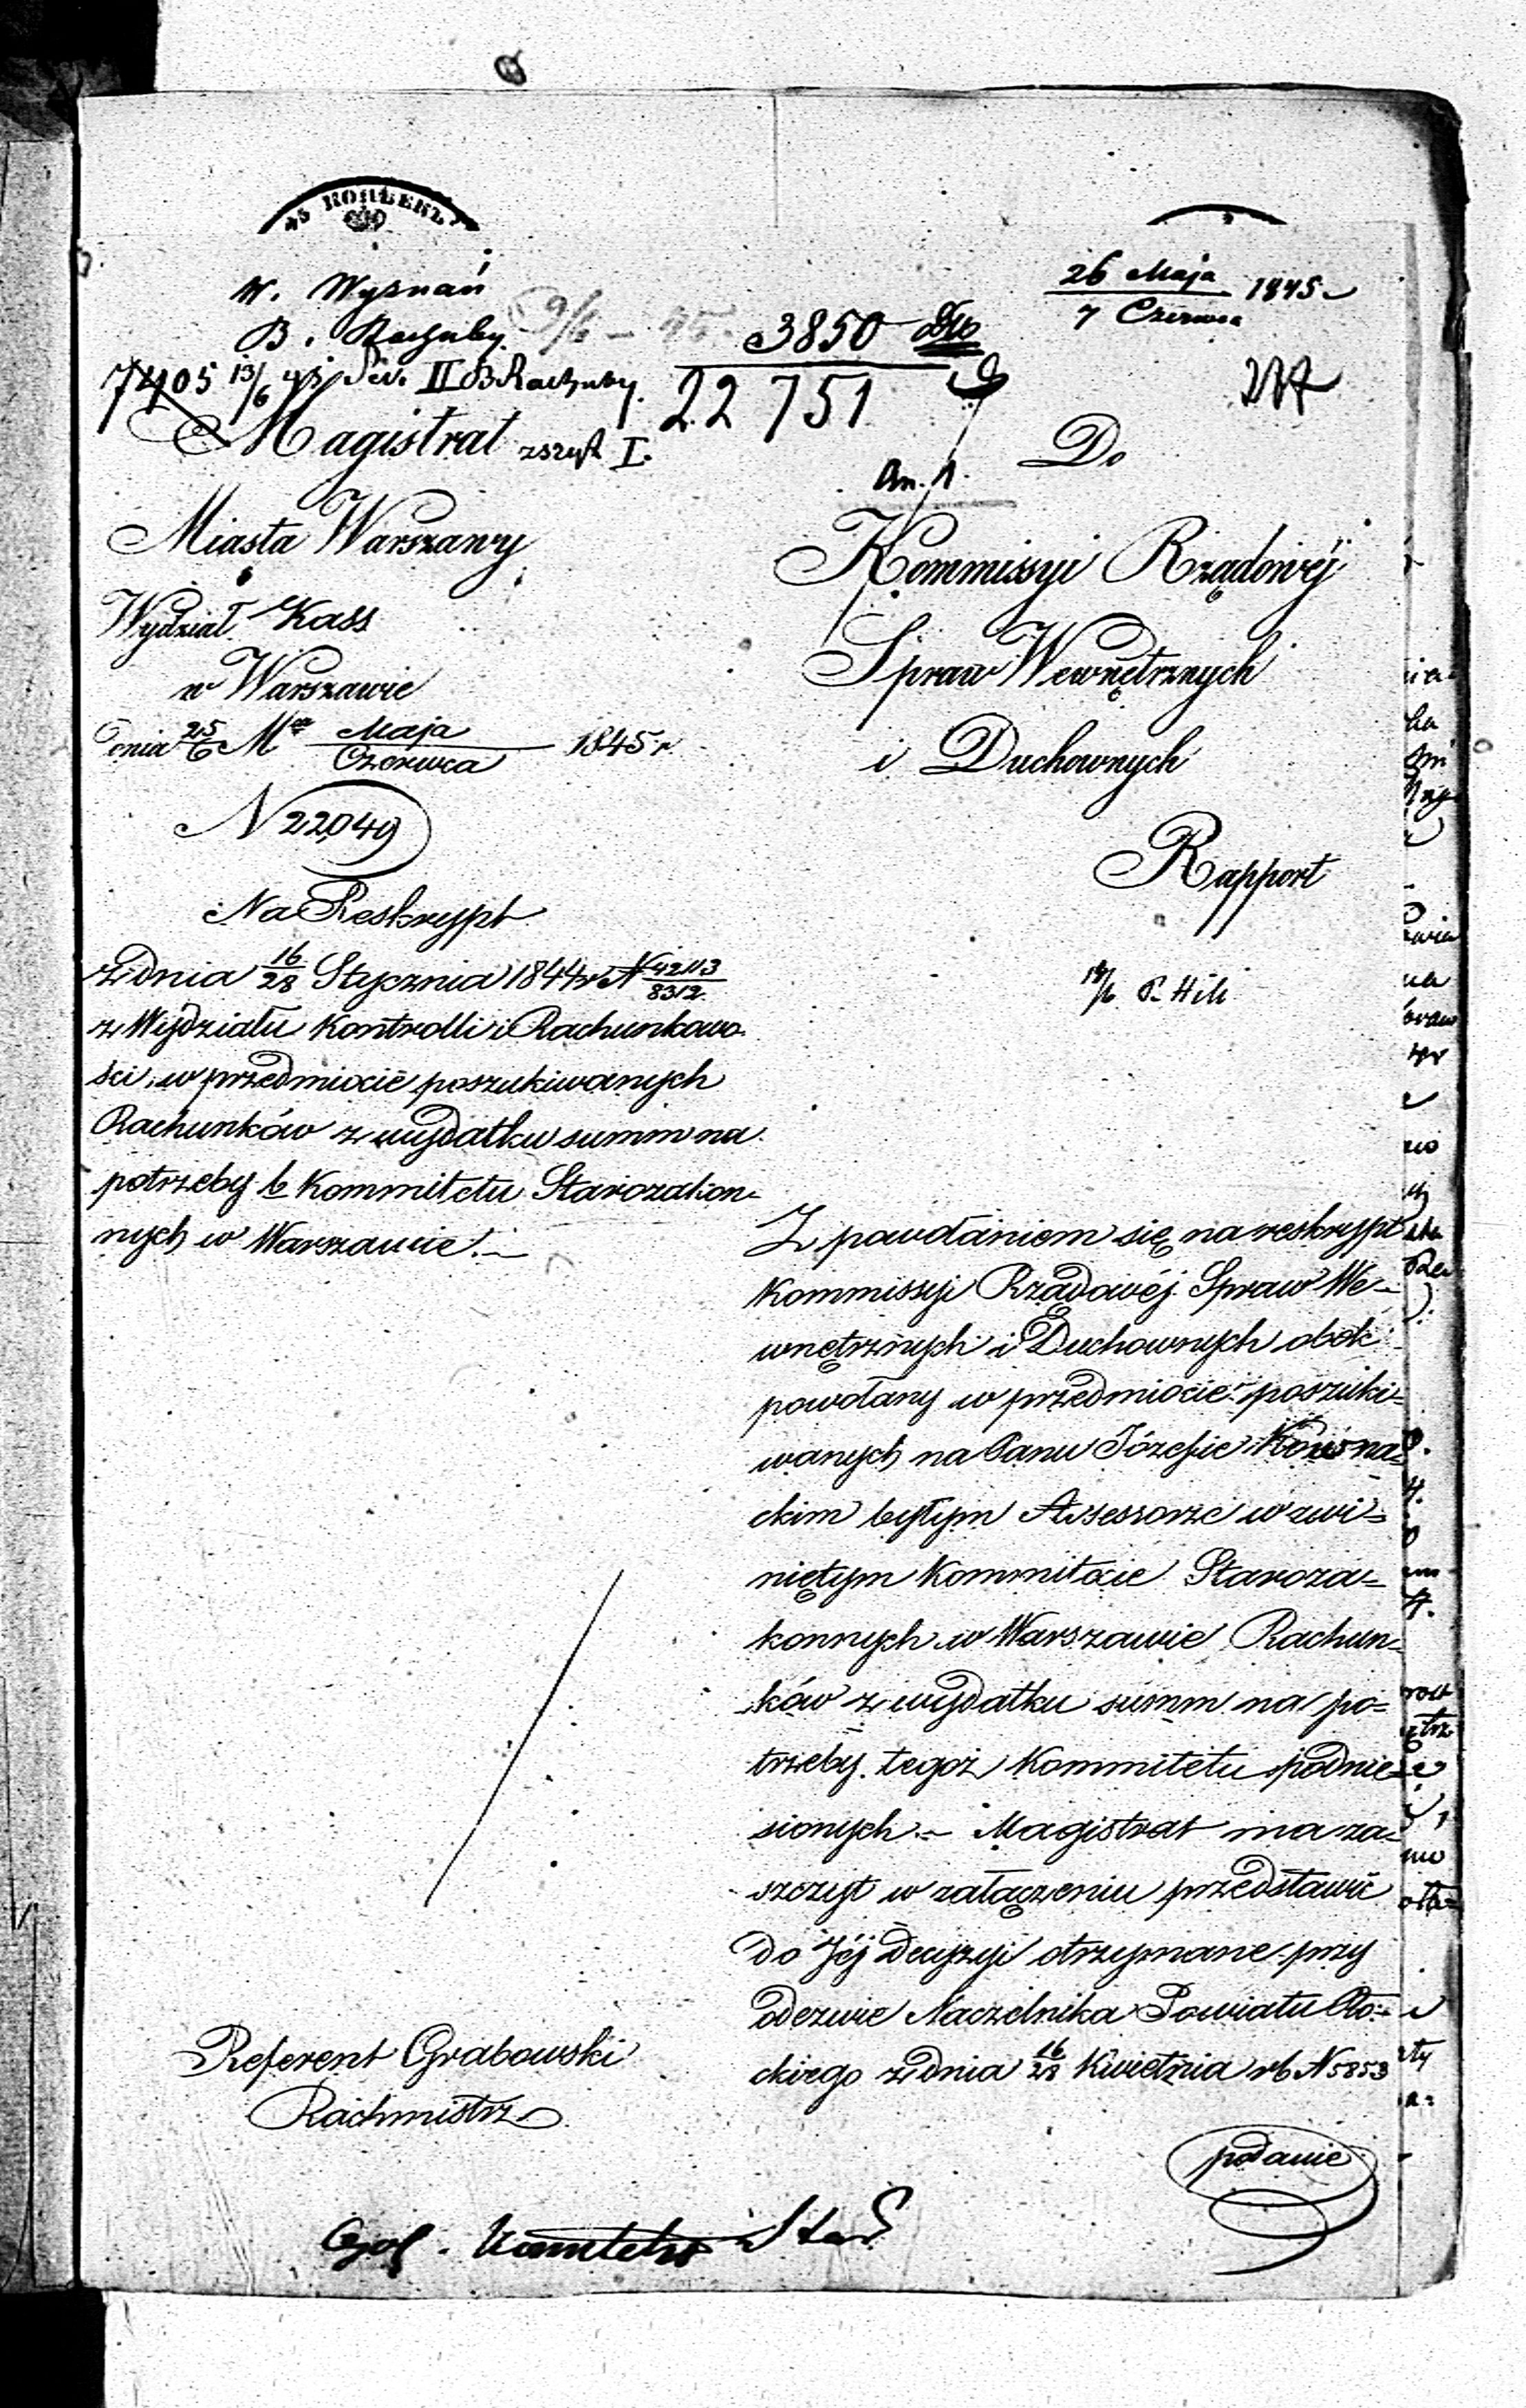 45 KOPIEEK
W. Wyznań
B. Rachuby
26 Maja
7 Czerwca 1845
3850
22 751
7405 13/6 45 Sek. II B Rachuby.
zszyt I.
Magistrat
Miasta Warszawy
Wydział Kass
w Warszawie
Dnia 25/6 Mca Maja/Czerwca 1845 r.
N 22,049
Na Reskrypt
z dnia 16/28 Stycznia 1844 r N 42113/8312
z Wydziału Kontrolli i Rachunkowo
ści, w przedmiocie poszukiwanych
Rachunków z wydatku summ na
potrzeby b Kommitetu Starozakon-
nych w Warszawie.
An. 1.
Do
Kommissyi Rządowéj
Spraw Wewnętrznych
i Duchownych
Rapport
Z powołaniem się na reskrypt
Kommissyi Rządowéj Spraw We-
wnętrznych i Duchownych obok
powołany w przedmiocie poszuki-
wanych na Panu Józefie Kowna-
ckim byłym Assessorze w zwi-
niętym Kommitecie Staroza-
konnych w Warszawie Rachun-
ków z wydatku summ na po-
trzeby tegoż Kommitetu podnie-
sionych.- Magistrat ma za-
szczyt w załączeniu przedstawić
do Jéj decyzyi otrzymane przy
odezwie Naczelnika Powiatu Pło-
ckiego z dnia 16/28 Kwietnia rb N 5853
podanie
Referent Grabowski
Rachmistrz